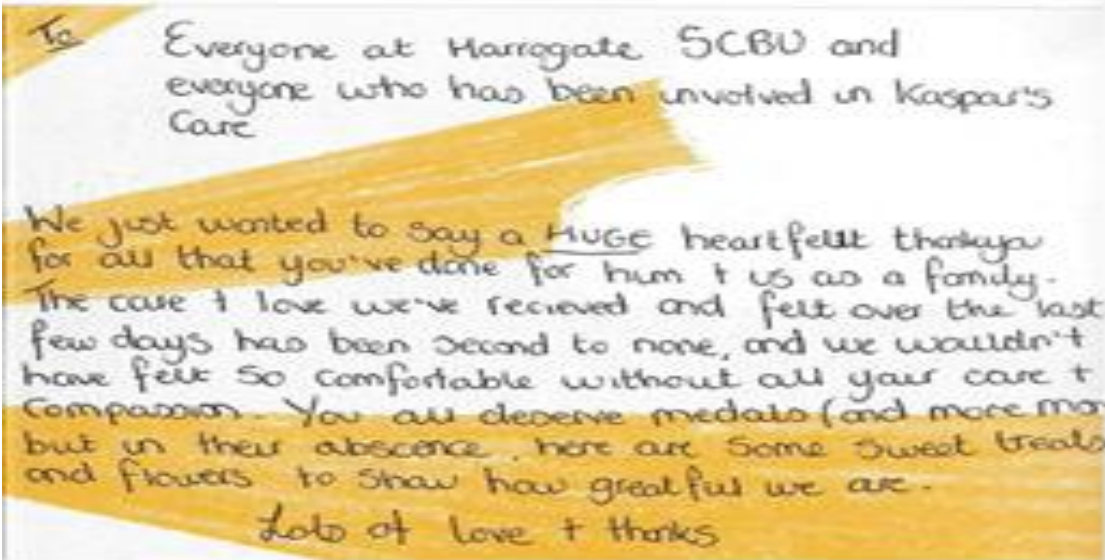 To
Everyone at Harrogate SCBU and
everyone who has been involved in Kaspar's
Care
We just wanted to say a HUGE heartfellt thankyou
for all that you've done for him + us as a family.
The care + love we've recieved and felt over the last
few days has been second to none, and we wouldn't
have felt so comfortable without all your care +
compassion. You all deserve medals (and more mon
but in their abscence, here are some sweet treats
and flowers to show how greatful we are.
Lots of love + thanks